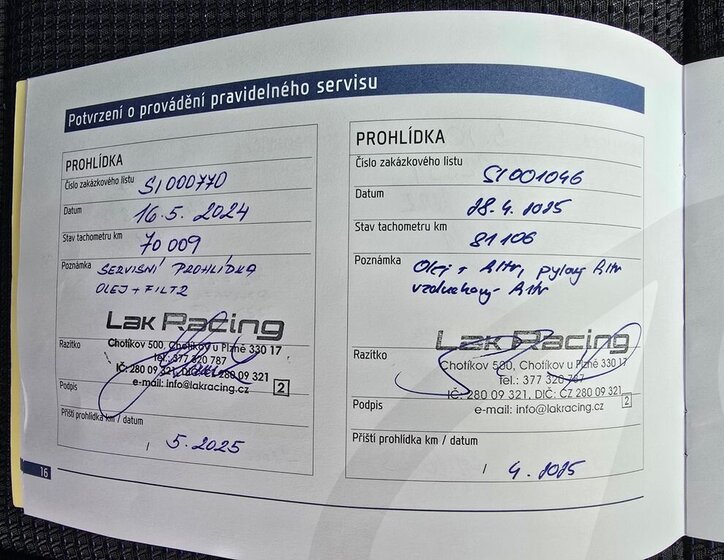 Potvrzení o provádění pravidelného servisu
PROHLÍDKA
Číslo zakázkového listu SI000770
Datum 16.5. 2024
Stav tachometru km 70 009
Poznámka SERVISNÍ PROHLÍDKA
OLEJ + FILTR
Lak Racing
Razítko Chotíkov 500, Chotíkov u Plzně 330 17
tel: 377 320 787
IČ: 280 09 321, DIČ: CZ 280 09 321
Podpis e-mail: info@lakracing.cz 2
Příští prohlídka km / datum
/ 5.2025
PROHLÍDKA
Číslo zakázkového listu SI001046
Datum 28.4. 2025
Stav tachometru km 81 106
Poznámka Olej + filtr, pylový filtr
vzduchový filtr
Lak Racing
Razítko Chotíkov 500, Chotíkov u Plzně 330 17
Tel.: 377 320 787
IČ: 280 09 321, DIČ: CZ 280 09 321
Podpis e-mail: info@lakracing.cz 2
Příští prohlídka km / datum
/ 4.
16